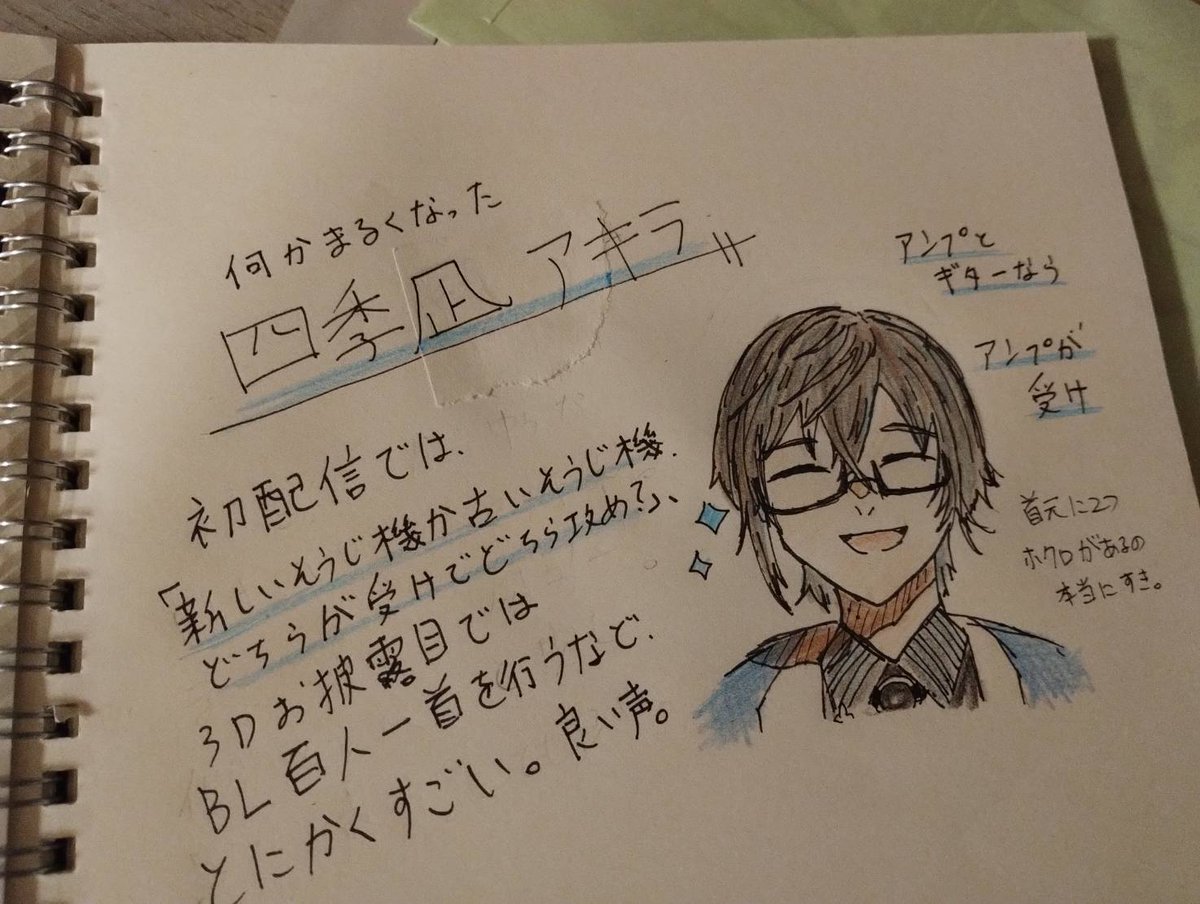 何かまるくなった
四季凪アキラ
初配信では、
「新しいそうじ機か古いそうじ機、
どちらが受けでどちら攻め?」、
3Dお披露目では
BL百人一首を行うなど、
とにかくすごい。良い声。
アンプと
ギターなう
アンプが
受け
首元に2つ
ホクロがあるの
本当にすき。